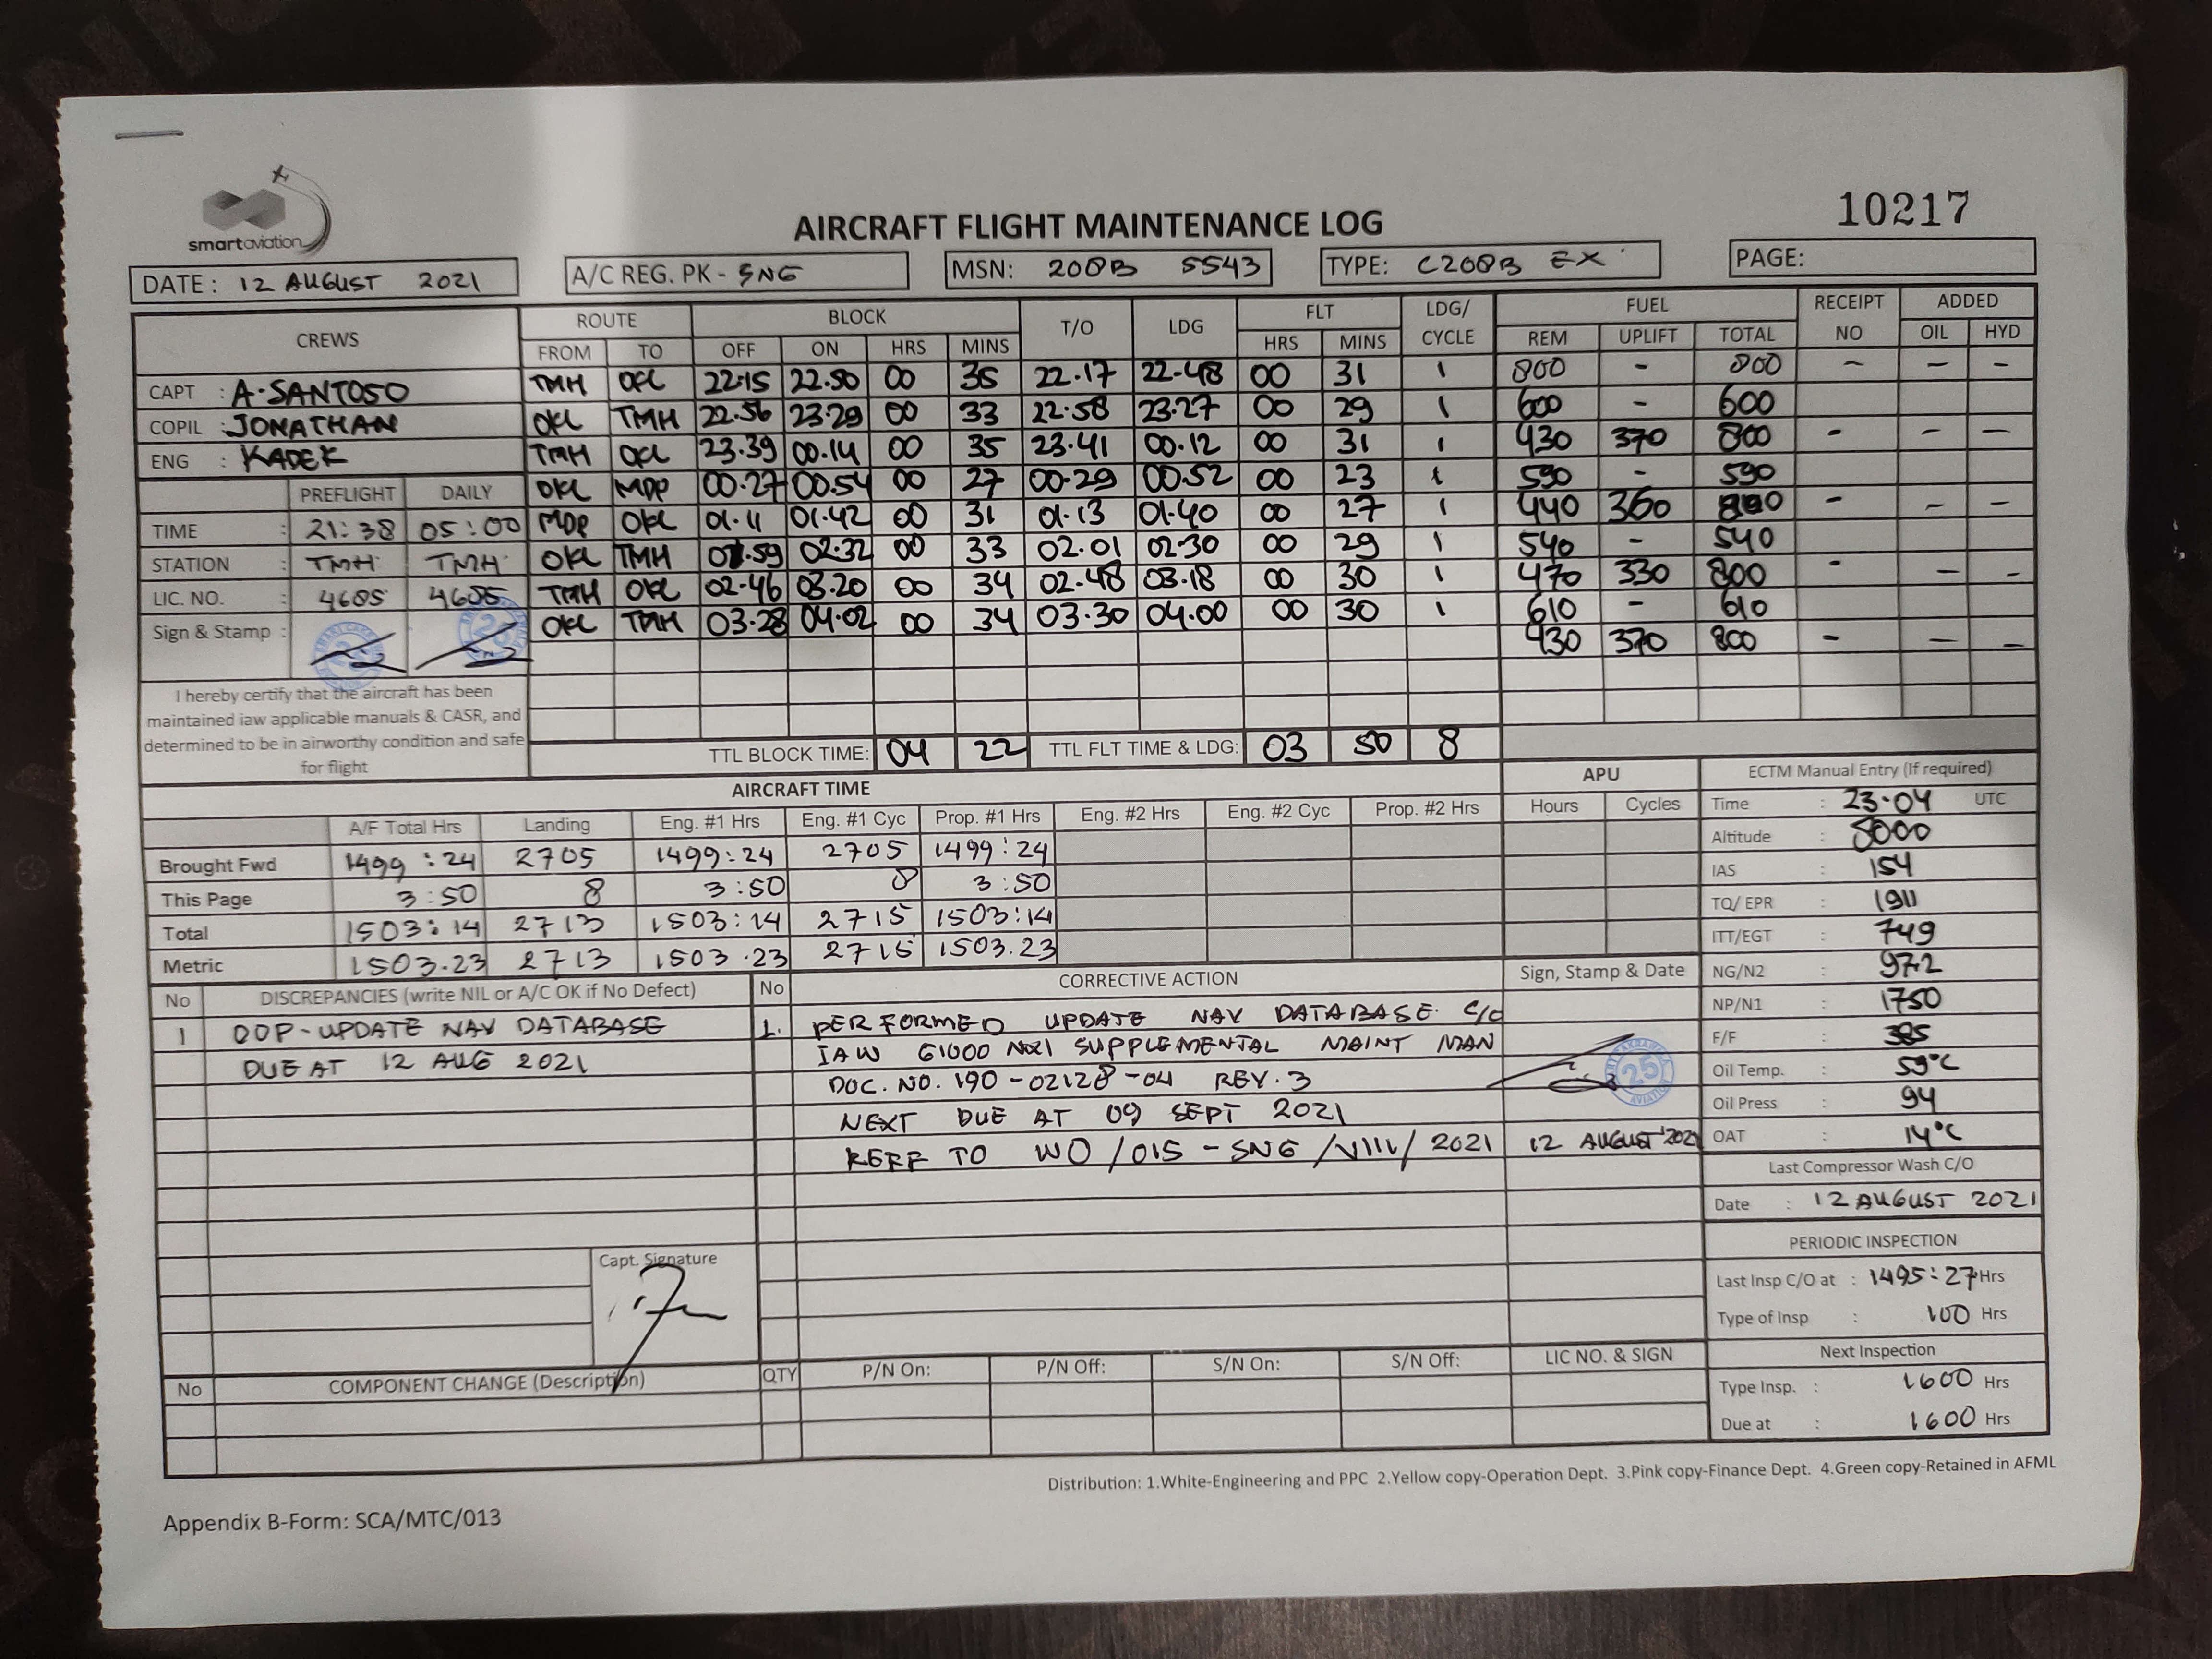 smartaviation
10217
AIRCRAFT FLIGHT MAINTENANCE LOG
DATE : 12 AUGUST 2021 A/C REG. PK - SNG MSN: 208B 5543 TYPE: C208B EX PAGE:
CREWS ROUTE BLOCK T/O LDG FLT LDG/ CYCLE FUEL RECEIPT NO ADDED
FROM TO OFF ON HRS MINS HRS MINS REM UPLIFT TOTAL OIL HYD
CAPT : A. SANTOSO
COPIL : JONATHAN
ENG : KADEK
TMH OKL 22.15 22.50 00 35 22.17 22.48 00 31 1 800 - 800 - - -
OKL TMH 22.56 23.29 00 33 22.58 23.27 00 29 1 600 - 600
TMH OKL 23.39 00.14 00 35 23.41 00.12 00 31 1 430 370 800 - - -
OKL MDP 00.27 00.54 00 27 00.29 00.52 00 23 1 590 - 590
MDP OKL 01.11 01.42 00 31 01.13 01.40 00 27 1 440 360 800 - - -
OKL TMH 01.59 02.32 00 33 02.01 02.30 00 29 1 540 - 540
TMH OKL 02.46 03.20 00 34 02.48 03.18 00 30 1 470 330 800 - - -
OKL TMH 03.28 04.02 00 34 03.30 04.00 00 30 1 610 - 610
430 370 800 - - -
PREFLIGHT DAILY
TIME : 21:38 05:00
STATION : TMH TMH
LIC. NO. : 4685 4685
Sign & Stamp :
I hereby certify that the aircraft has been
maintained iaw applicable manuals & CASR, and
determined to be in airworthy condition and safe
for flight
TTL BLOCK TIME: 04 22 TTL FLT TIME & LDG: 03 50 8
AIRCRAFT TIME
A/F Total Hrs Landing Eng. #1 Hrs Eng. #1 Cyc Prop. #1 Hrs Eng. #2 Hrs Eng. #2 Cyc Prop. #2 Hrs
Brought Fwd 1499 : 24 2705 1499:24 2705 1499:24
This Page 3:50 8 3:50 8 3:50
Total 1503:14 2713 1503:14 2715 1503:14
Metric 1503.23 2713 1503.23 2715 1503.23
APU
Hours Cycles
ECTM Manual Entry (If required)
Time : 23.04 UTC
Altitude : 8000
IAS : 154
TQ/ EPR : 1911
ITT/EGT : 749
NG/N2 : 97.2
NP/N1 : 1750
F/F : 385
Oil Temp. : 59°C
Oil Press : 94
OAT : 14°C
Last Compressor Wash C/O
Date : 12 AUGUST 2021
PERIODIC INSPECTION
Last Insp C/O at : 1495:27 Hrs
Type of Insp : 100 Hrs
Next Inspection
Type Insp. : 1600 Hrs
Due at : 1600 Hrs
No DISCREPANCIES (write NIL or A/C OK if No Defect) No CORRECTIVE ACTION Sign, Stamp & Date
1 OOP-UPDATE NAV DATABASE
DUE AT 12 AUG 2021
1. PERFORMED UPDATE NAV DATABASE C/O
IAW G1000 NXI SUPPLEMENTAL MAINT MAN
DOC. NO. 190-02128-04 REV. 3
NEXT DUE AT 09 SEPT 2021
REFF TO WO/015-SNG/VIII/2021
25
AVIATION
12 AUGUST 2021
Capt. Signature
No COMPONENT CHANGE (Description) QTY P/N On: P/N Off: S/N On: S/N Off: LIC NO. & SIGN
Distribution: 1.White-Engineering and PPC 2.Yellow copy-Operation Dept. 3.Pink copy-Finance Dept. 4.Green copy-Retained in AFML
Appendix B-Form: SCA/MTC/013